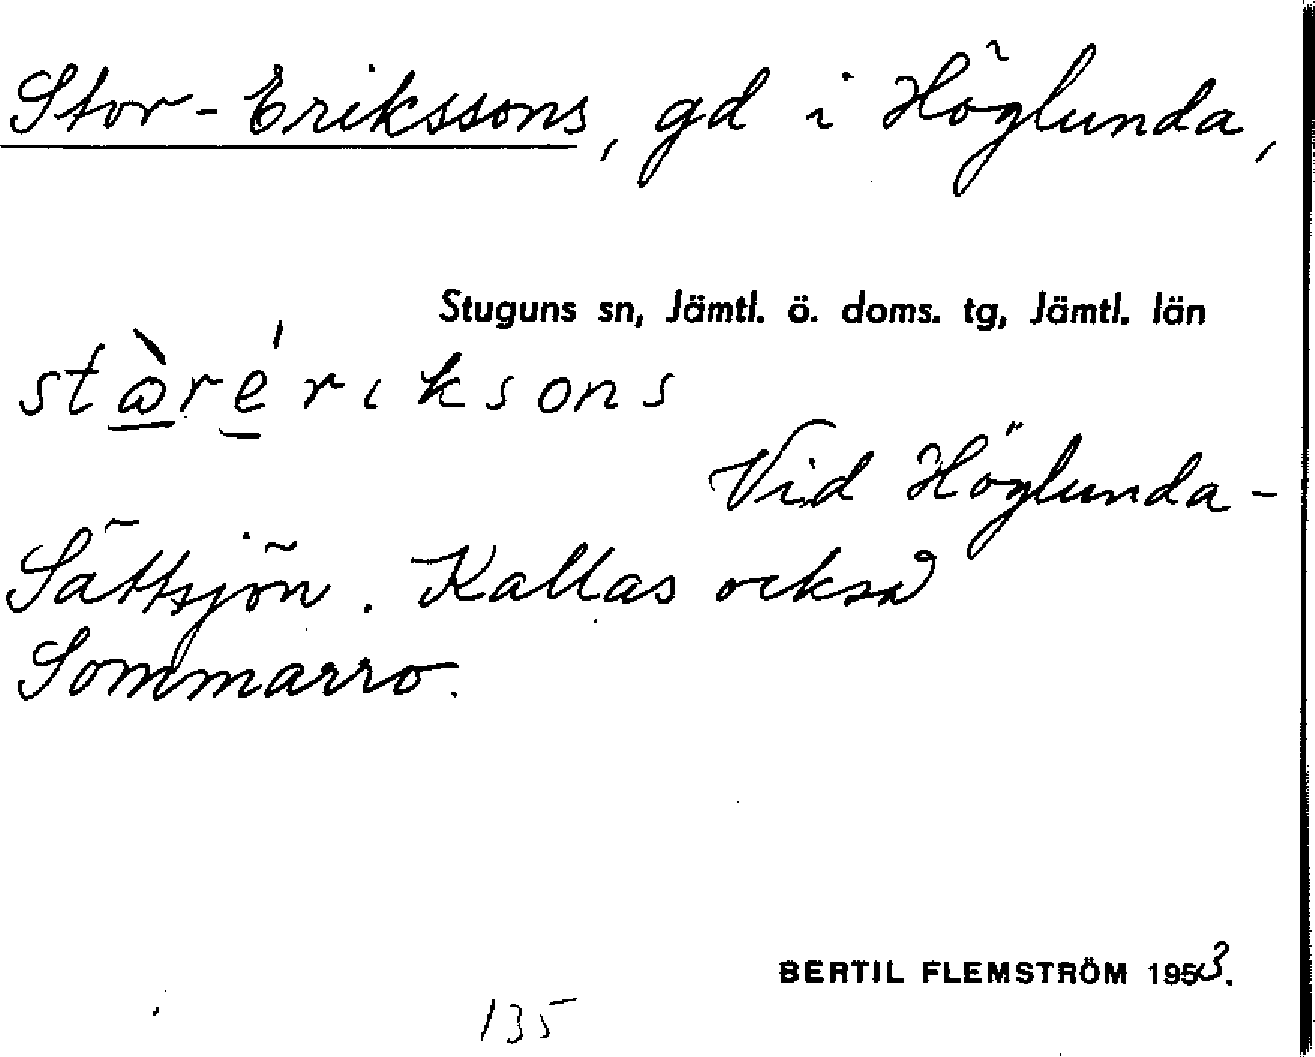 Stor-Erikssons, gd i Höglunda,
Stuguns sn, Jämtl. ö. doms. tg, Jämtl. län
stꞷ̀rériksons
Vid Höglunda-
Sättsjön. Kallas också
Sommarro.
BERTIL FLEMSTRÖM 1953.
135